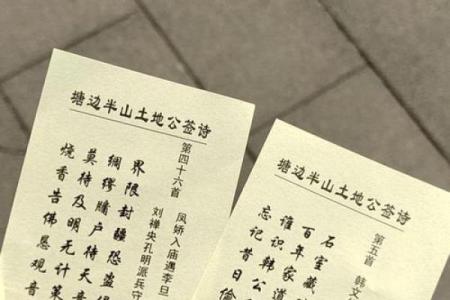 塘边半山土地公签诗
第四十六首 凤娇入庙遇李旦
刘禅央孔明派兵守
界限封疆恐盗
绸缪牖户待天
莫待及明无计策
烧香告佛恳观音
塘边半山土地公签诗
第五首 韩文
石室藏
百年家道
谁识韩公
忘记昔日